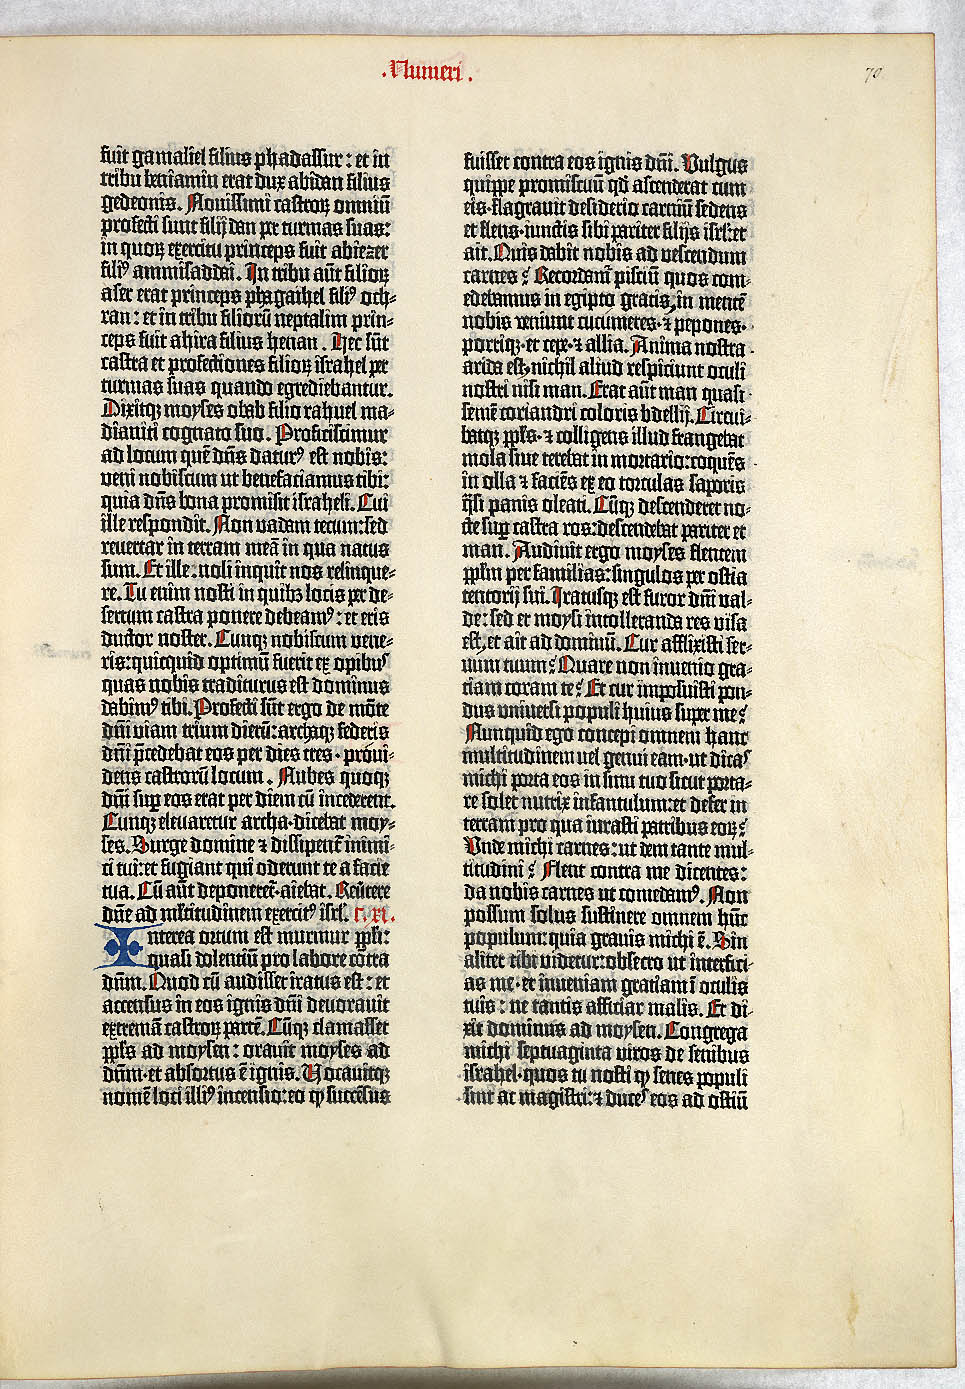 .Numeri.
70
fuit gamaliel filius phadassur: et in
tribu beniamin erat dux abidan filius
gedeonis. Nouissimi castroꝝ omniū
profecti sunt filij dan per turmas suas:
in quoꝝ exercitu princeps fuit abiezer
filiꝰ ammisaddai. In tribu aūt filioꝝ
aser erat princeps phegaihel filiꝰ och-
ran: et in tribu filiorū neptalim prin-
ceps fuit ahira filius henan. Hec sūt
castra et profectiones filioꝝ israhel per
turmas suas quando egrediebantur.
Dixitqꝫ moyses obab filio rahuel ma-
dianiti cognato suo. Proficiscimur
ad locum quē dn̄s daturꝰ est nobis:
veni nobiscum ut benefaciamus tibi:
quia dn̄s bona promisit israheli. Cui
ille respondit. Non vadam tecum: sed
reuertar in terram meā in qua natus
sum. Et ille. noli inquit nos relinque-
re. Tu enim nosti in quibꝫ locis per de-
sertum castra ponere debeamꝰ: et eris
ductor noster. Cumqꝫ nobiscum vene-
ris: quicquid optimū fuerit ex opibꝰ
quas nobis traditurus est dominus
dabimꝰ tibi. Profecti sūt ergo de mōte
dn̄i viam trium dierū: archaqꝫ federis
dn̄i p̄cedebat eos per dies tres· prouī-
dens castrorū locum. Nubes quoqꝫ
dn̄i suꝑ eos erat per diem cū incederent.
Cumqꝫ eleuaretur archa· dicebat moy-
ses. Surge domine ⁊ dissipent̄ inimi-
ci tui: et fugiant qui oderunt te a facie
tua. Cū aūt deponeret̄· aiebat. Reūtere
dn̄e ad ml̄titudinem exercitꝰ isrl̄. C. XI.
Interea ortum est murmur ppl̄i:
quasi dolentiū pro labore cōtra
dn̄m. Quod cū audisset iratus est: et
accensus in eos ignis dn̄i deuorauit
extremā castroꝝ partē. Cūqꝫ clamasset
ppl̄s ad moysen: orauit moyses ad
dn̄m· et absortus ē ignis. Vocauitqꝫ
nomē loci illiꝰ incensio: eo ꝙ succēsus
fuisset contra eos ignis dn̄i. Vulgus
quippe promiscuū qd̄ ascenderat cum
eis· flagrauit desiderio carniū sedens
et flens· iunctis sibi pariter filijs isrl̄: et
ait. Quis dabit nobis ad vescendum
carnes? Recordam̄ pisciū quos com-
edebamus in egipto gratis, in mentē
nobis veniunt cucumeres· ⁊ pepones·
porriqꝫ· et cepe· ⁊ allia. Anima nostra
arida est, nichil aliud respiciunt oculi
nostri nisi man. Erat aūt man quasi
semē coriandri coloris bdellij. Circui-
batqꝫ ppl̄s· ⁊ colligens illud frangebat
mola siue terebat in mortario: coquēs
in olla ⁊ faciēs ex eo tortulas saporis
q̄si panis oleati. Cūqꝫ descenderet no-
cte suꝑ castra ros: descendebat pariter et
man. Audiuit ergo moyses flentem
ppl̄m per familias: singulos per ostia
tentorij sui. Iratusqꝫ est furor dn̄i val-
de: sed et moysi intolleranda res visa
est, et ait ad dominū. Cur afflixisti ser-
uum tuum? Quare non inuenio gra-
tiam coram te? Et cur imposuisti pon-
dus vniuersi populi huius super me?
Nunquid ego concepi omnem hanc
multitudinem uel genui eam· ut dicaꝰ
michi porta eos in sinu tuo sicut porta-
re solet nutrix infantulum: et defer in
terram pro qua iurasti patribus eoꝝ?
Vnde michi carnes: ut dem tante mul-
titudini? Flent contra me dicentes:
da nobis carnes ut comedamꝰ. Non
possum solus sustinere omnem hūc
populum: quia grauis michi ē. Sin
aliter tibi videtur: obsecro ut interfici-
as me· et inueniam gratiam ī oculis
tuis: ne tātis afficiar malis. Et di-
xit dominus ad moysen. Congrega
michi septuaginta viros de senibus
israhel· quos tu nosti ꝙ senes populi
sint ac magistri: ⁊ duceꝰ eos ad ostiū